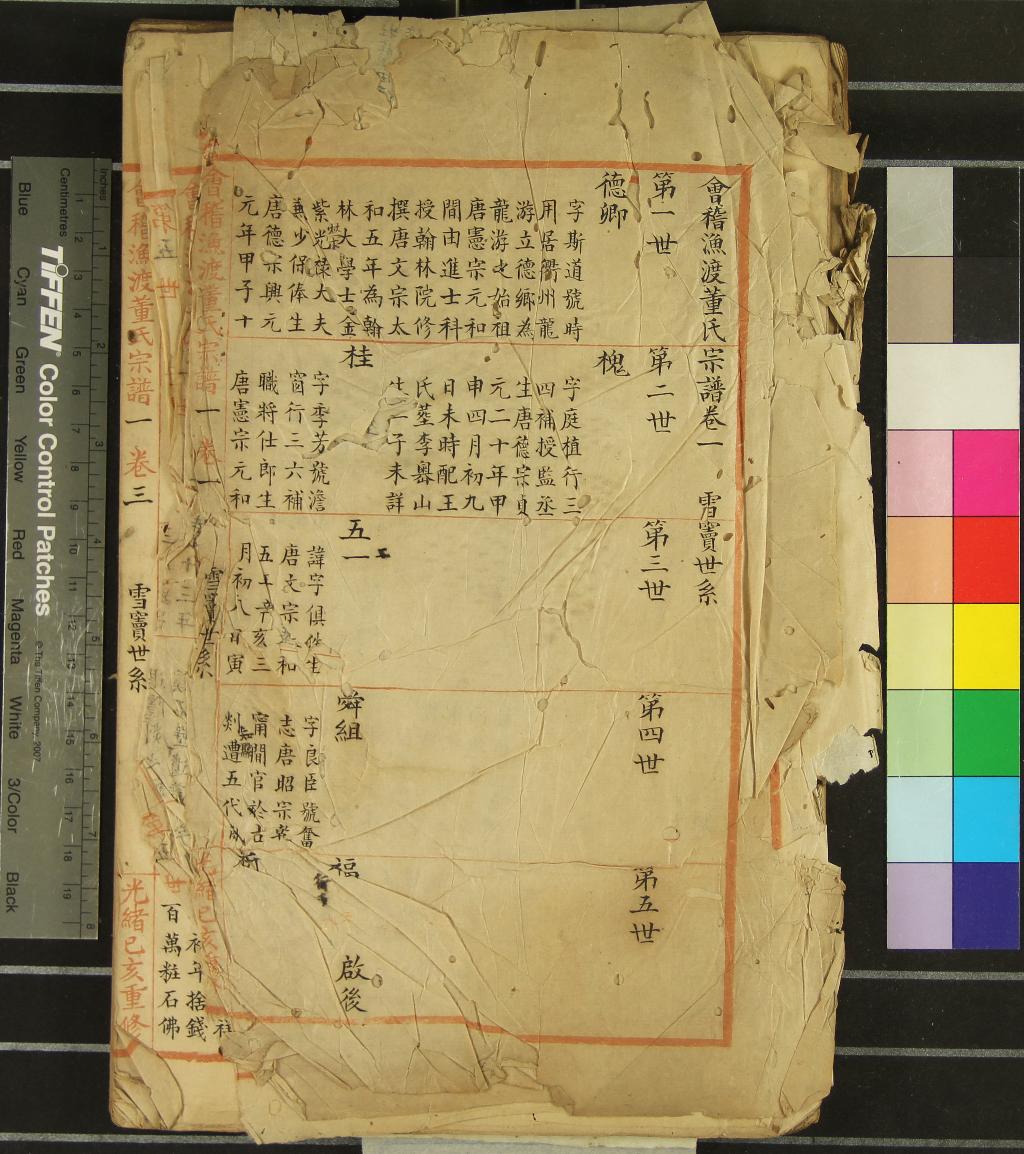 會稽漁渡董氏宗譜卷一 雪竇世系
第一世
德卿
字斯道號時
用居衢州龍
游立德鄉為
龍游之始祖
唐憲宗元和
間由進士科
授翰林院修
撰唐文宗太
和五年為翰
林大學士金
紫光祿大夫
榮
兼少保俸生
唐德宗興元
元年甲子十
第二世
槐
字庭植行三
四補授監丞
生唐德宗貞
元二十年甲
申四月初九
日未時配王
氏塟李嶴山
生一子未詳
桂
字季芳號澹
窗行三六補
職將仕郎生
唐憲宗元和
第三世
五一
諱字俱
唐文宗 和
五年辛亥三
月初八日寅
第四世
舜組
字良臣號奮
志唐昭宗乾
甯間官於古
剡遭五代
第五世
福
啟後
會稽漁渡董氏宗譜 一 卷一 雪竇世系
光緒己亥
初年捨錢
百萬粧石佛
第五世
會稽漁渡董氏宗譜 一 卷三 雪竇世系
光緒己亥重修
Inches
Centimetres
1 2 3 4 5 6 7 8
1 2 3 4 5 6 7 8 9 10 11 12 13 14 15 16 17 18 19
TIFFEN® Color Control Patches
© The Tiffen Company, 2007
Blue Cyan Green Yellow Red Magenta White 3/Color Black